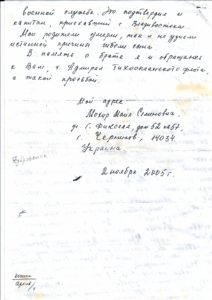 военкой службе. Это подтвердил и
капитан, приехавший с Владивостока.
Мои родители умерли, так и не узнали
истинной причины гибели сына.
В память о брате я и обращаюсь
к Вам, т. Адмирал Тихоокеанского флота,
с такой просьбой.
Мой адрес
Мохир Майя Семеновна,
ул. г. дом 52 кв 67.
г. Чернигов, 14034
Украина.
2 ноября 2005 г.